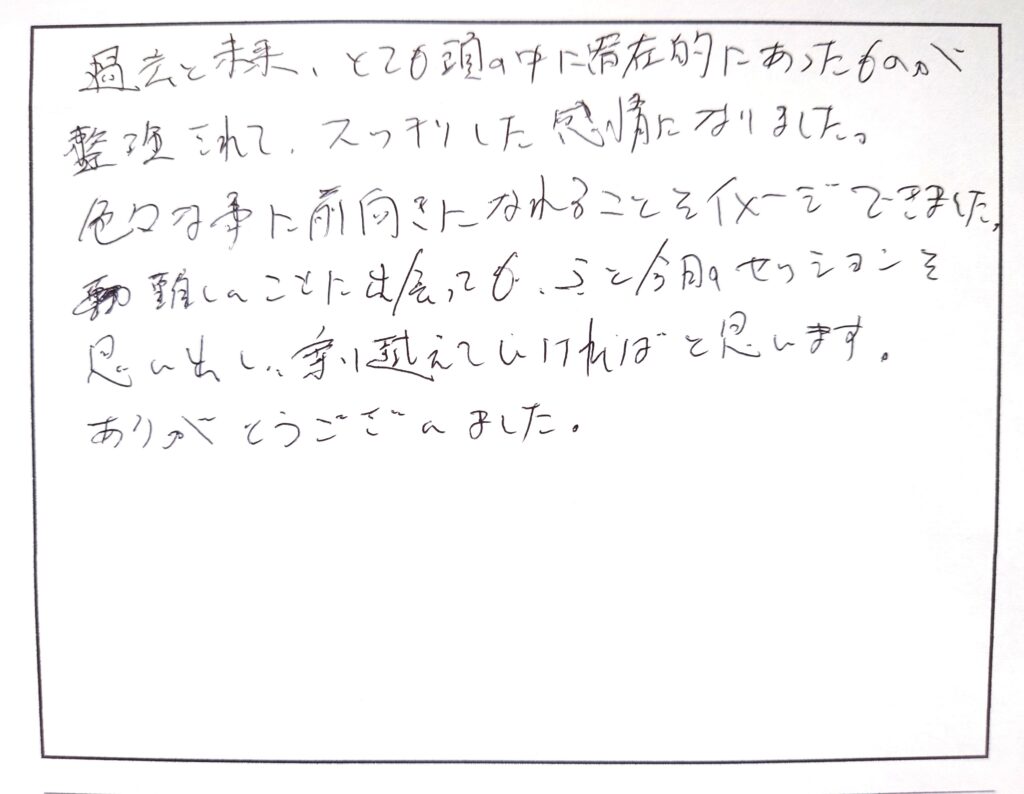 過去と未来、とても頭の中に潜在的にあったものが
整理されて、スッキリした感情になりました。
色々な事に前向きになれることをイメージできました。
難しいことに出会っても、ふと今日のセッションを
思い出し、乗り越えていければと思います。
ありがとうございました。